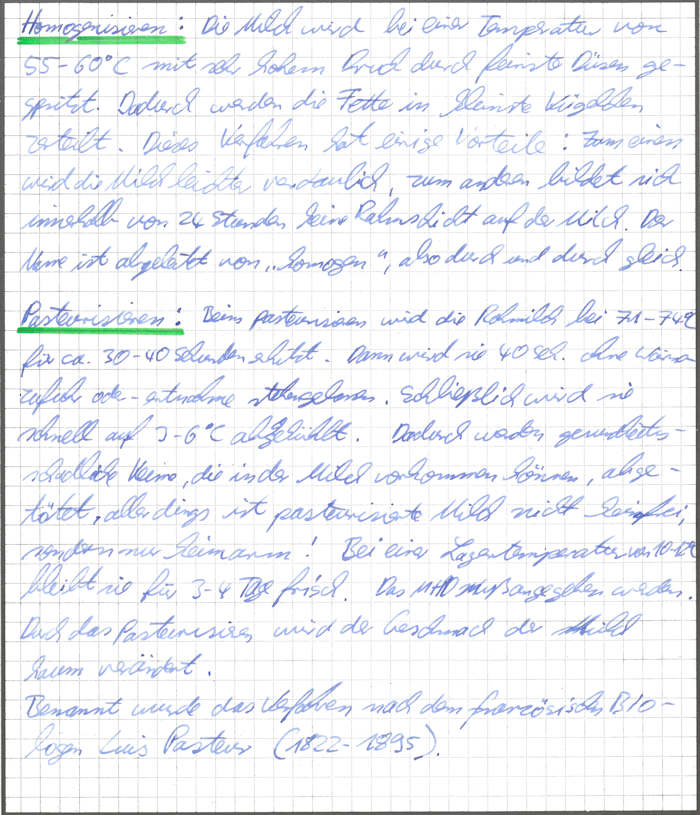 Homogenisieren: Die Milch wird bei einer Temperatur von
55-60°C mit sehr hohem Druck durch feinste Düsen ge-
spritzt. Dadurch werden die Fette in kleinste Kügelchen
zerteilt. Dieses Verfahren hat einige Vorteile: Zum einen
wird die Milch leichter verdaulich, zum anderen bildet sich
innerhalb von 24 Stunden keine Rahmschicht auf der Milch. Der
Name ist abgeleitet von „homogen", also durch und durch gleich.
Pasteurisieren: Beim pasteurisieren wird die Rohmilch bei 71-74°C
für ca. 30-40 Sekunden erhitzt. Dann wird sie 40 Sek. ohne Wärme-
zufuhr oder -entnahme stehengelassen. Schließlich wird sie
schnell auf 3-6°C abgekühlt. Dadurch werden gesundheits-
schädliche Keime, die in der Milch vorkommen können, abge-
tötet, allerdings ist pasteurisierte Milch nicht keimfrei,
sondern nur keimarm! Bei einer Lagertemperatur von 10-12°C
bleibt sie für 3-4 Tage frisch. Das MHD muß angegeben werden.
Durch das Pasteurisieren wird der Geschmack der Milch
kaum verändert.
Benannt wurde das Verfahren nach dem französischen Bio-
logen Luis Pasteur (1822-1895).